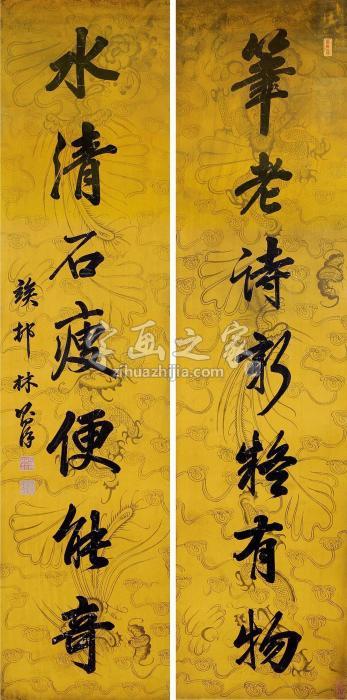 筆老詩新疑有物
水清石瘦便能奇
竢邨林則徐
字画之家
zihuazhijia.com